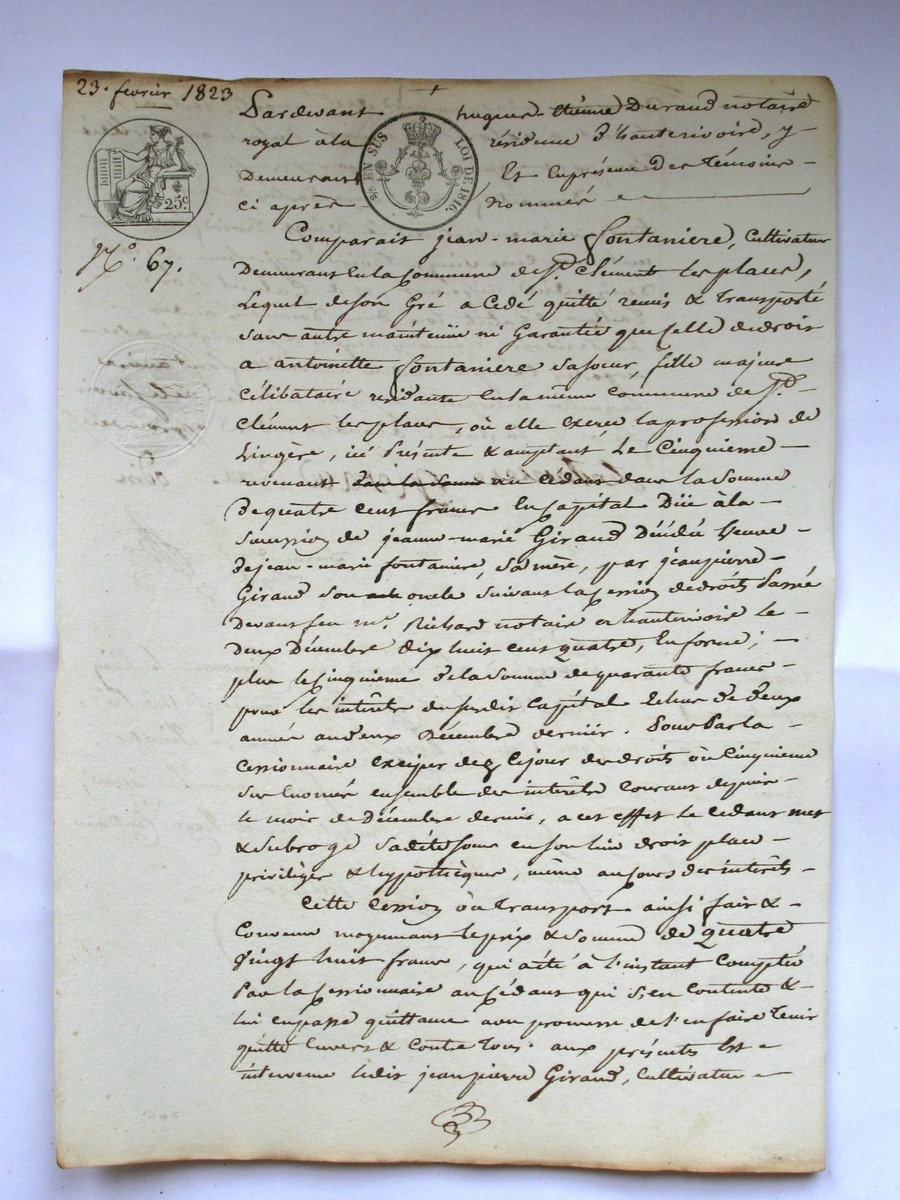 23. fevrier 1823
25c
2/10 EN SUS LOI DE 1816.
N.° 67.
Pardevant hugues étienne Durand notaire
royal à la résidence d'hauterivoire, y
Demeurant Et En présence Des Témoins
ci après nommés
Comparait jean-marie fontaniere, Cultivateur
Demeurant En la Commune de St. Clément les places,
Lequel de son Gré a Cédé quitté remis & Transporté
sans autre maintenüe ni Garantie que Celle de droit
a antoinette fontaniere sa soeur, fille majeure
célibataire residante En la même Commune de St.
Clément les places, où elle exerce la profession de
Lingère, ici Présente & acceptant Le Cinquieme
revenant au Cedant dans la Somme
De quatre cent francs En Capital Düe à la
Succession de jeanne-marie Giraud Décédée Veuve
de jean-marie fontaniere, sa mère, par jean pierre
Giraud son oncle suivant la Cession de droits Passée
Devant feu me. Richard notaire en hauterivoire Le
Deux Décembre dix huit cent quatre, En forme;
plus le Cinquieme de la Somme de quarante francs
pour les intérêts du susdit Capital Echus de deux
années au deux Décembre dernier. Pour Par la
Cessionnaire Exciper dez Ce jour des droits où Cinquieme
sus Enoncés ensemble des intérêts Courant depuis
le mois de Décembre dernier, a cet effet Le Cedant met
& subroge sa dite soeur en son lieu droit place
privilèges & hypothèques, même au cours des intérêts
Cette Cession où Transport ainsi fait &
Convenu moyennant le prix & somme de quatre
Vingt huit francs, qui a été à l'instant Comptée
Par la Cessionnaire au Cédant qui s'en Contente &
lui en passe quittance avec promesse de l'en faire Tenir
quitte Envers & Contre Tous. aux présentes Est
intervenu ledit jean pierre Giraud, Cultivateur